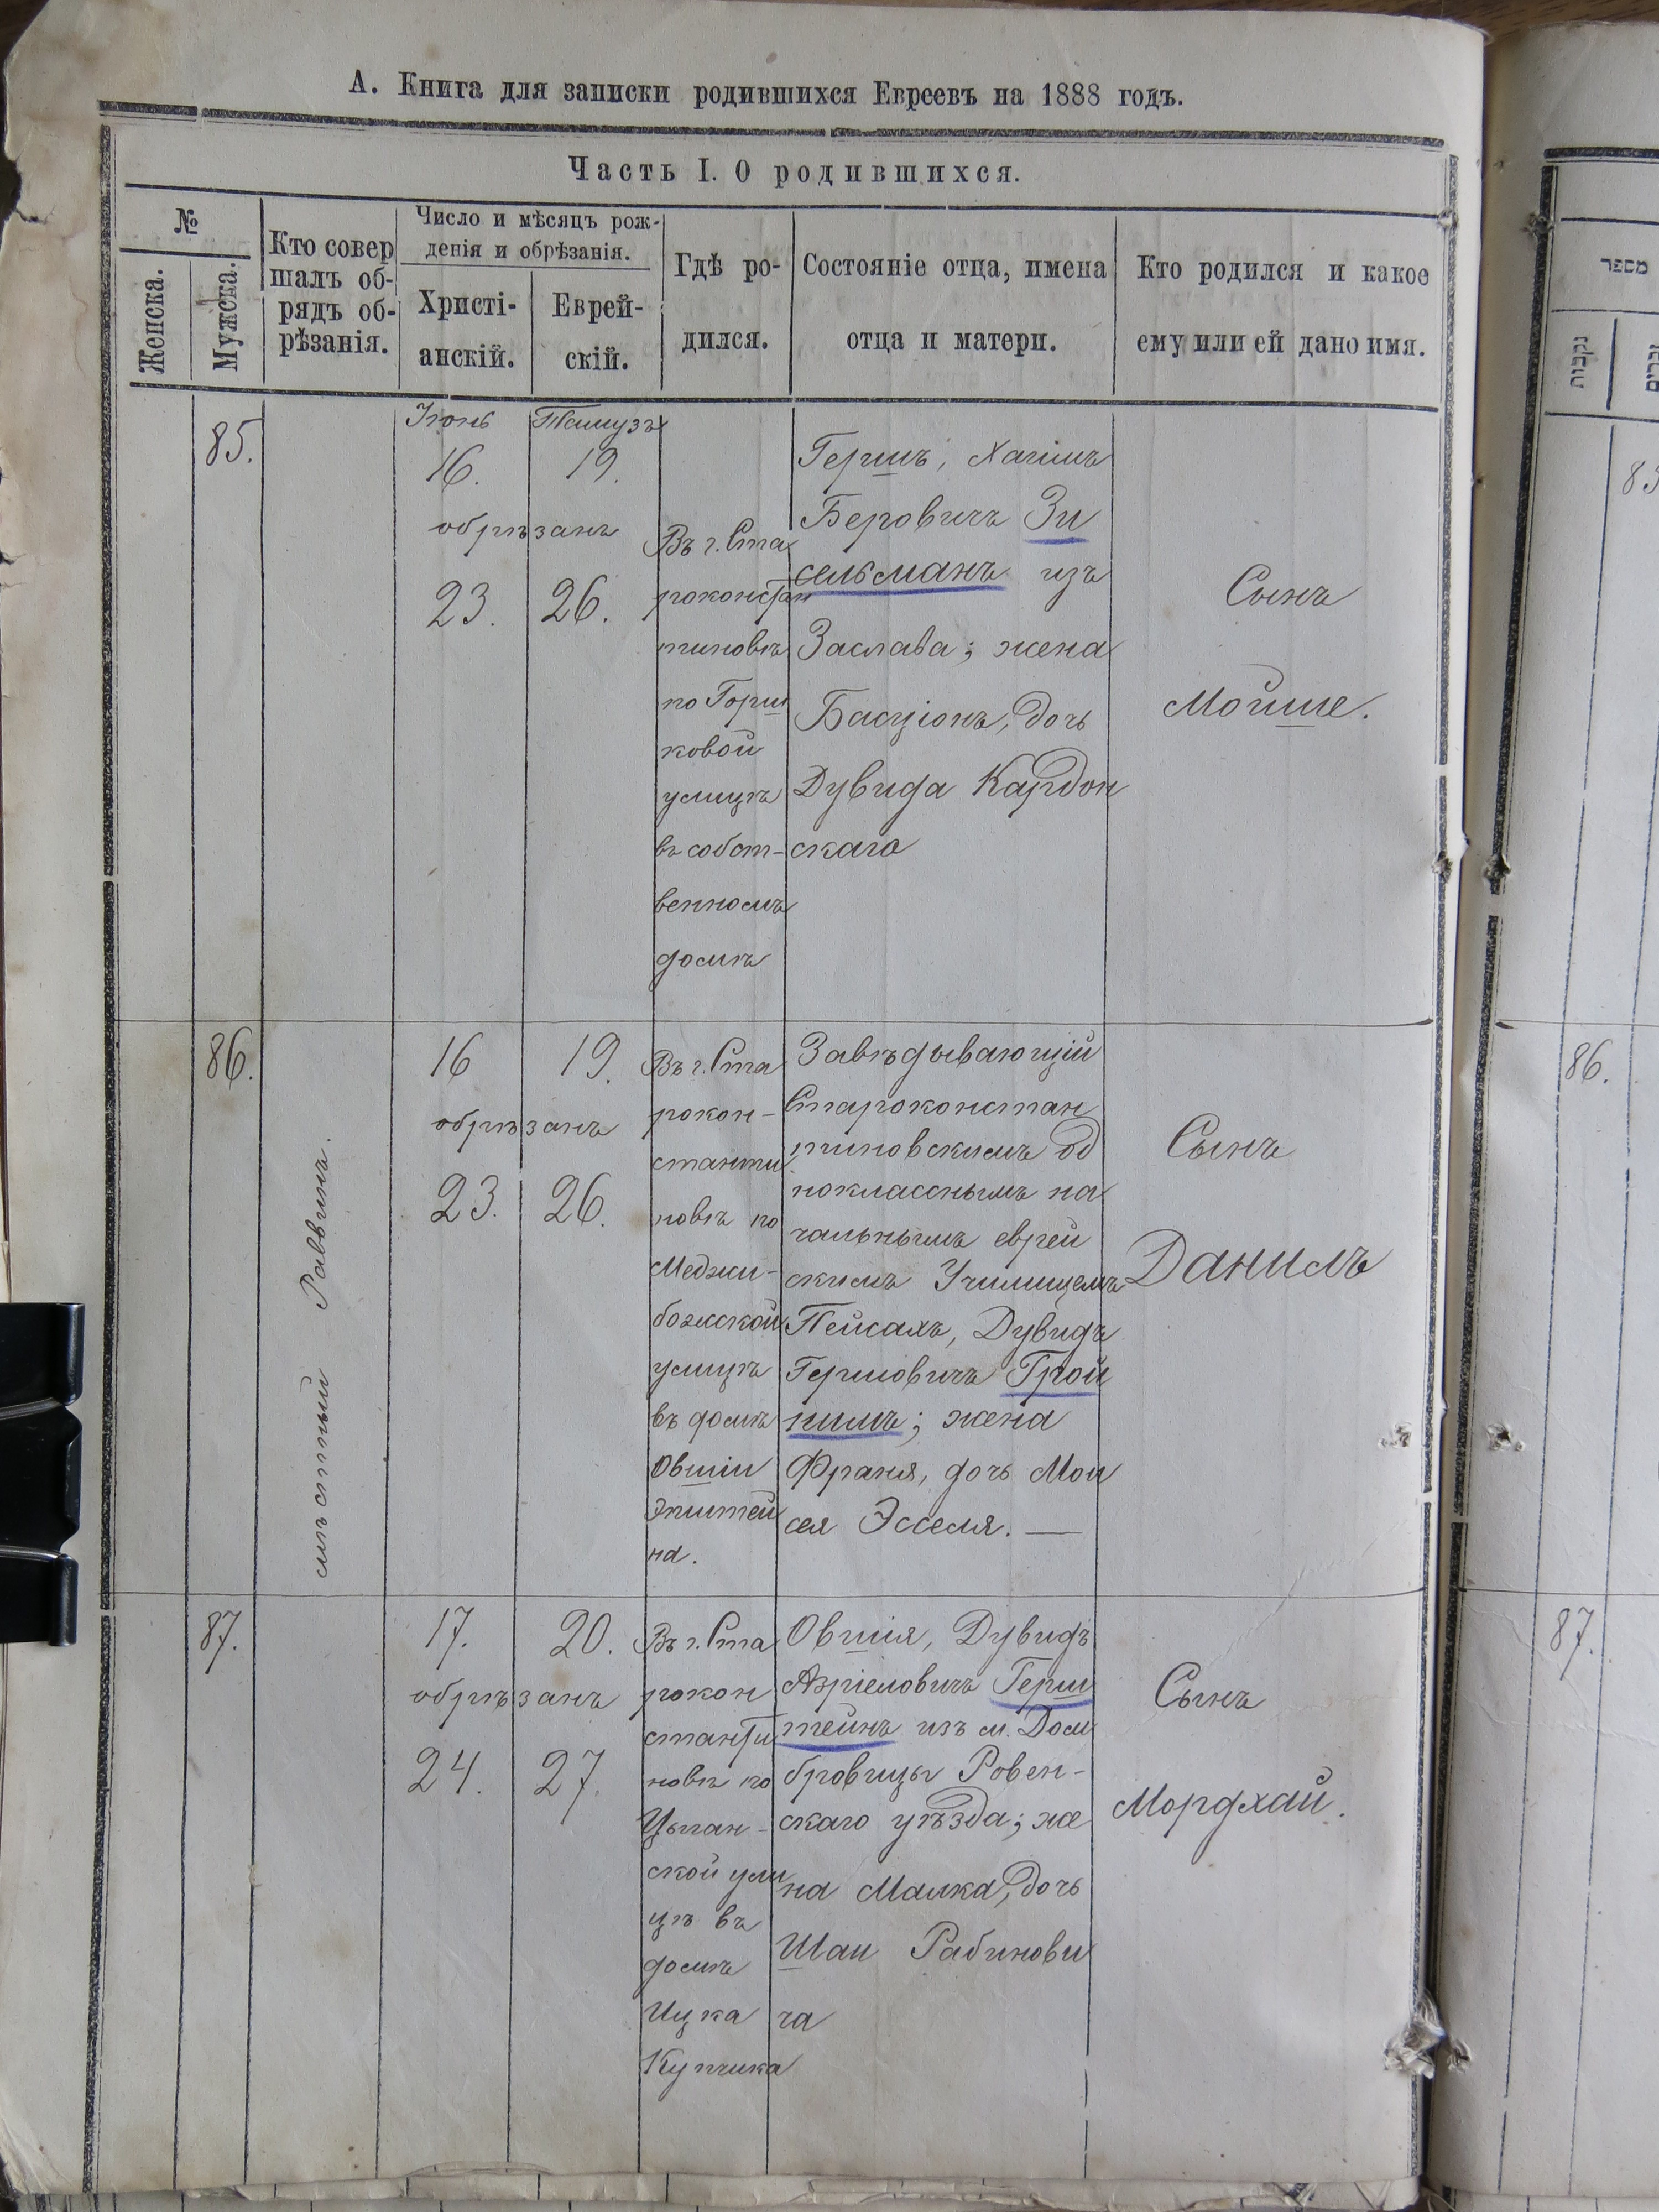 А. Книга для записки родившихся Евреевъ на 1888 годъ.
Часть I. О родившихся.
№
Женска.
Мужска.
Кто совер
шалъ об-
рядъ об-
рѣзанія.
Число и мѣсяцъ рож-
денія и обрѣзанія.
Христі-
анскій.
Еврей-
скій.
Гдѣ ро-
дился.
Состояніе отца, имена
отца и матери.
Кто родился и какое
ему или ей дано имя.
מספר
נקבות
זכרים
85.
Іюнь
Тамузъ
16.
19.
обрѣзанъ
23.
26.
Въ г. Ста
роконстан
тиновѣ
по Горш
ковой
улицѣ
въ собст-
венномъ
домѣ
Гершъ, Хаимъ
Беровичъ Зи
сельманъ изъ
Заслава; жена
Басціонъ, дочь
Дувида Кардон
скаго
Сынъ
Мойше.
86.
мѣстный Раввинъ.
16
19.
обрѣзанъ
23.
26.
Въ г. Ста
рокон-
станти
новѣ по
Меджи-
божской
улицѣ
въ домѣ
Овшіи
Эпштей
на.
Завѣдывающій
Староконстан
тиновскимъ од
нокласснымъ на
чальнымъ еврей
скимъ Училищемъ
Пейсахъ, Дувидъ
Гершовичъ Грой
нимъ; жена
Франя, дочь Мои
сея Эсселя. —
Сынъ
Данилъ
86.
87.
17.
20.
обрѣзанъ
24.
27.
Въ г. Ста
рокон
станти
новѣ по
Цыган-
ской ули
цѣ въ
домѣ
Ицка
Купчика
Овшія, Дувидъ
Азріеловичъ Герш
тейнъ изъ м. Дом
бровицы Ровен-
скаго уѣзда; же
на Малка, дочь
Шаи Рабинови
ча
Сынъ
Мордхай.
87.